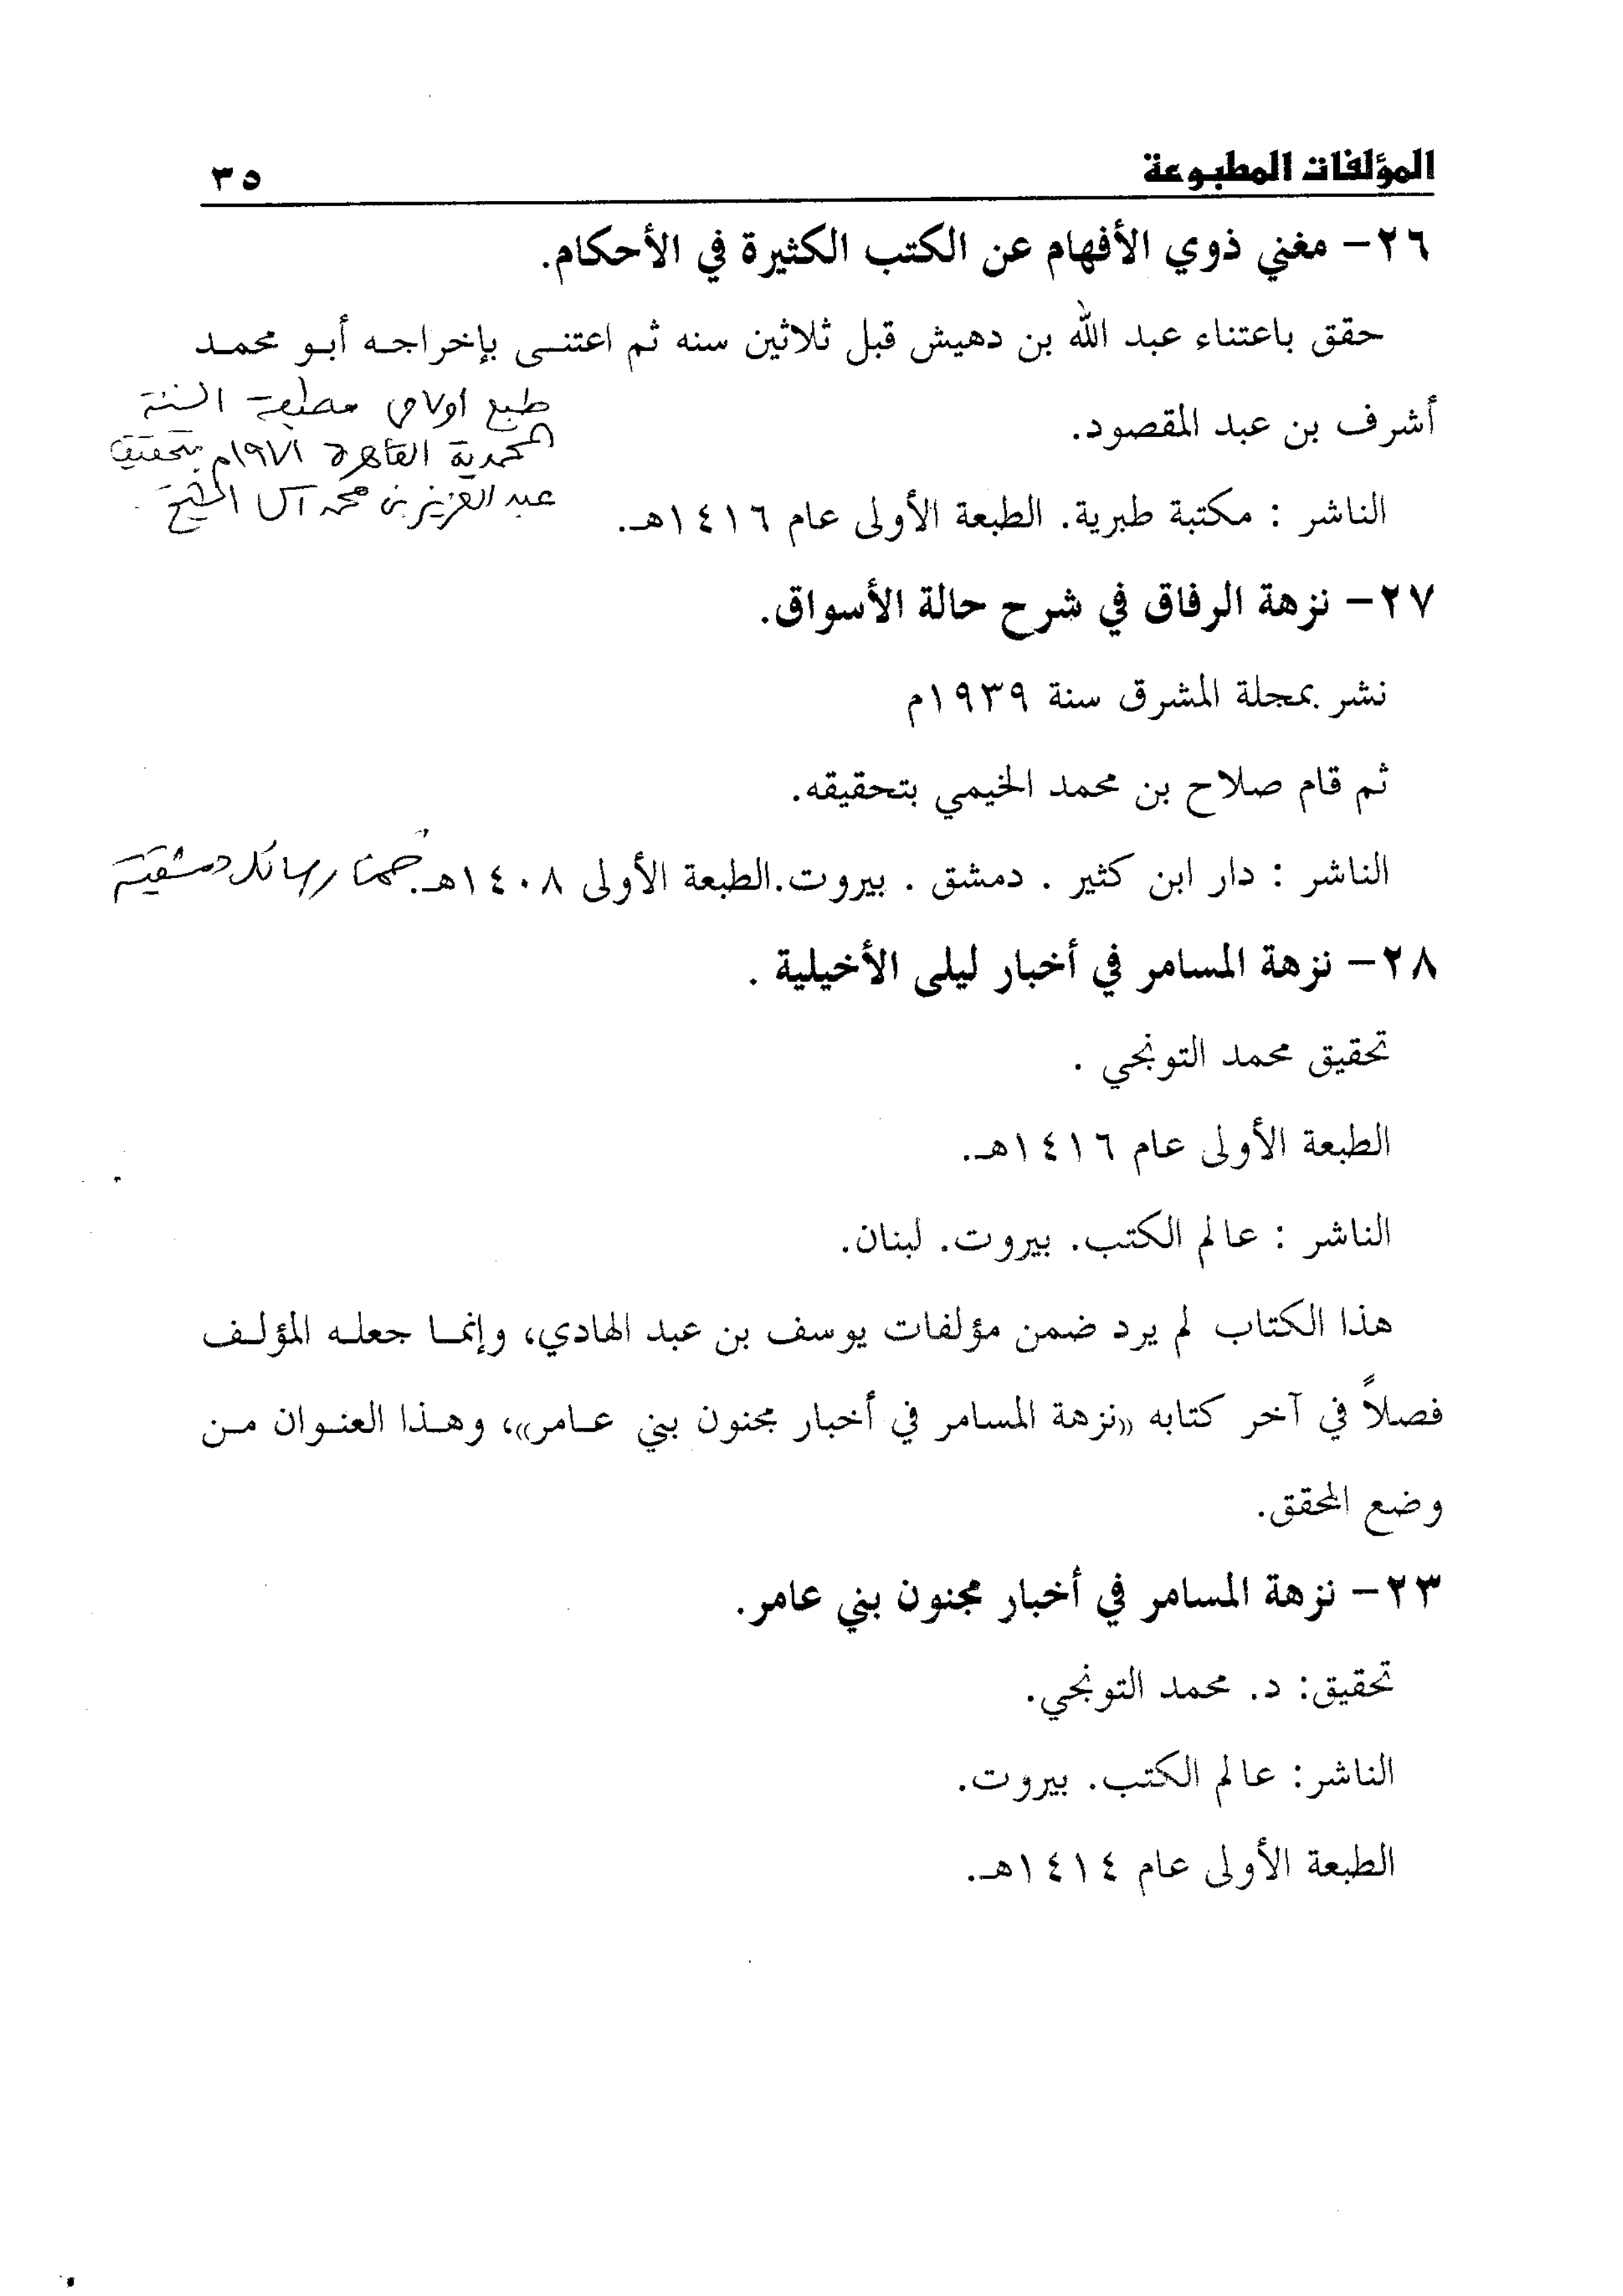 المؤلفات المطبوعة ٣٥
٢٦- مغني ذوي الأفهام عن الكتب الكثيرة في الأحكام.
حقق باعتناء عبد الله بن دهيش قبل ثلاثين سنه ثم اعتنى بإخراجه أبو محمد
أشرف بن عبد المقصود.
طبع اولا في مطبعة السنة
المحمدية القاهرة ١٩٧١م بتحقيق
عبد العزيز بن محمد آل الشيخ
الناشر : مكتبة طبرية. الطبعة الأولى عام ١٤١٦هـ.
٢٧- نزهة الرفاق في شرح حالة الأسواق.
نشر بمجلة المشرق سنة ١٩٣٩م
ثم قام صلاح بن محمد الخيمي بتحقيقه.
الناشر : دار ابن كثير . دمشق . بيروت.الطبعة الأولى ١٤٠٨هـ. ضمن رسائل دمشقية
٢٨- نزهة المسامر في أخبار ليلى الأخيلية .
تحقيق محمد التونجي .
الطبعة الأولى عام ١٤١٦هـ.
الناشر : عالم الكتب. بيروت. لبنان.
هذا الكتاب لم يرد ضمن مؤلفات يوسف بن عبد الهادي، وإنما جعله المؤلف
فصلاً في آخر كتابه «نزهة المسامر في أخبار مجنون بني عامر»، وهذا العنوان من
وضع المحقق.
٢٣- نزهة المسامر في أخبار مجنون بني عامر.
تحقيق: د. محمد التونجي.
الناشر: عالم الكتب. بيروت.
الطبعة الأولى عام ١٤١٤هـ.